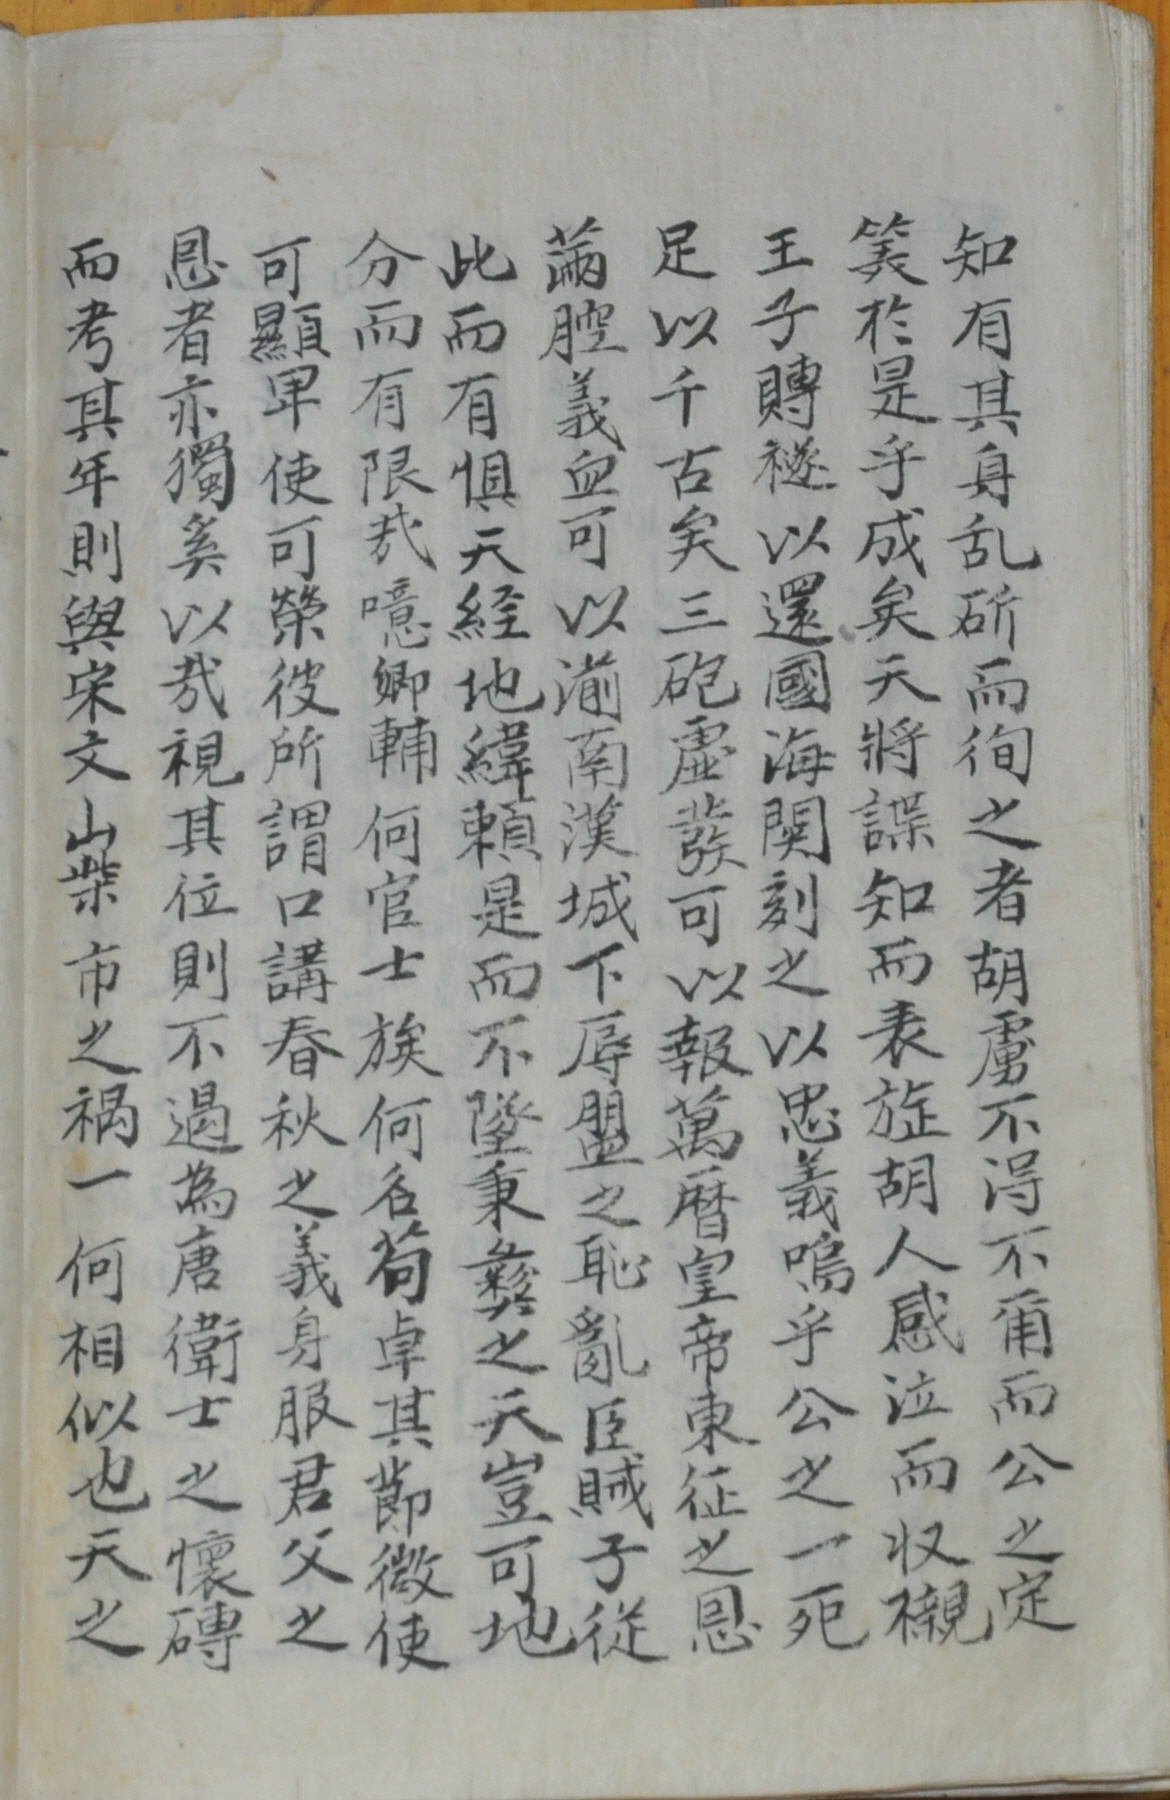 知有其身乱斫而徇之者胡虜不淂不甭而公之定
筭於是乎成矣天將諜知而表旌胡人感泣而収襯
王子賻禭以還國海関刻之以忠義嗚乎公之一死
足以千古矣三砲虛發可以報萬曆皇帝東征之恩
滿腔義血可以湔南漢城下辱盟之恥亂臣賊子從
此而有惧天経地緯頼是而不墜秉彜之天豈可地
分而有限㦲噫卿輔何官士族何名苟卓其節微使
可顯卑使可榮彼所謂口講春秋之義身服君父之
恩者亦獨奚以㦲視其位則不過為唐衛士之懷磚
而考其年則與宋文山柴市之禍一何相似也天之